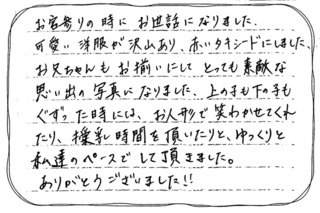 お宮参りの時にお世話になりました。
可愛い洋服が沢山あり、赤いタキシードにしました。
お兄ちゃんもお揃いにしてとっても素敵な
思い出の写真になりました。上の子も下の子も
ぐずった時には、お人形で笑わかせてくれ
たり、授乳時間を頂いたりと、ゆっくりと
私達のペースでして頂きました。
ありがとうございました!!